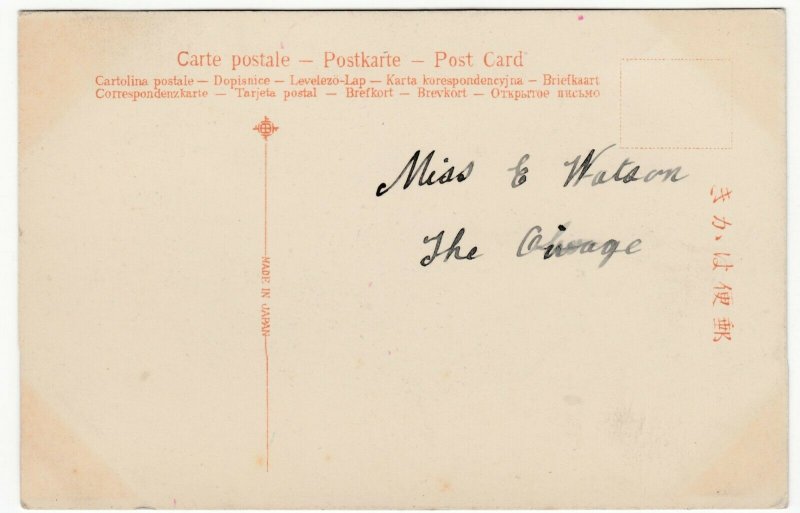 Carte postale — Postkarte — Post Card
Cartolina postale — Dopisnice — Levelező-Lap — Karta korespondencyjna — Briefkaart
Correspondenzkarte — Tarjeta postal — Brefkort — Brevkort — Открытое письмо
MADE IN JAPAN
Miss E Watson
The
きかは便郵